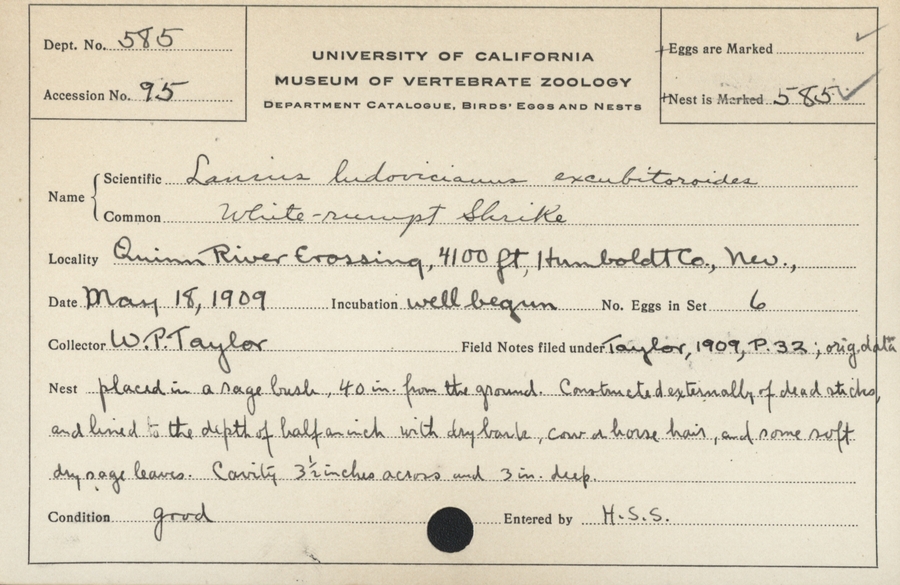 Dept. No. 585
Accession No. 95
UNIVERSITY OF CALIFORNIA
MUSEUM OF VERTEBRATE ZOOLOGY
DEPARTMENT CATALOGUE, BIRDS' EGGS AND NESTS
Eggs are Marked
Nest is Marked 585
Name
Scientific Lanius ludovicianus excubitoroides
Common White-rumpt Shrike
Locality Quinn River Crossing, 4100 ft, Humboldt Co., Nev.,
Date May 18, 1909 Incubation well begun No. Eggs in Set 6
Collector W.P. Taylor Field Notes filed under Taylor, 1909, P. 32; orig. data
Nest placed in a sage bush, 40 in. from the ground. Constructed externally of dead sticks,
and lined to the depth of half an inch with dry bark, cow & horse hair, and some soft
dry sage leaves. Cavity 3½ inches across and 3 in. deep.
Condition good Entered by H.S.S.